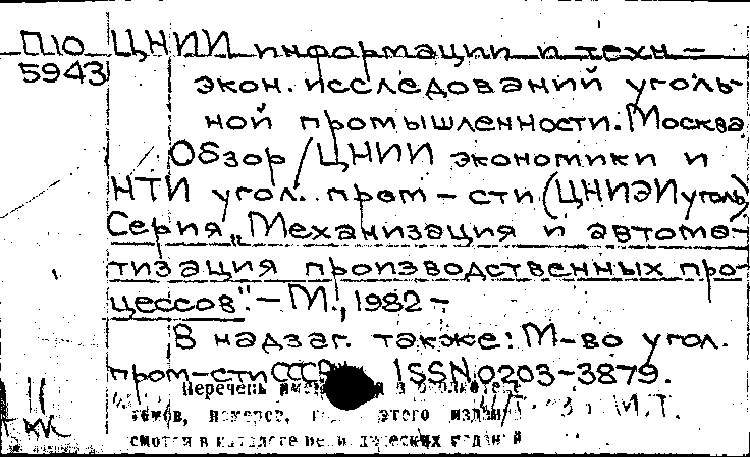 П10 ЦНИИ информации и техн-
5943 экон. исследований уголь-
ной промышленности. Москва.
Обзор / ЦНИИ экономики и
НТИ угол. пром-сти (ЦНИЭИуголь)
Серия „Механизация и автома-
тизация производственных про-
цессов". - М., 1982 -
В надзаг. также: М-во угол.
пром-сти СССР ISSN 0203-3879.
Перечень
томов, номеров, этого
смотри в каталоге